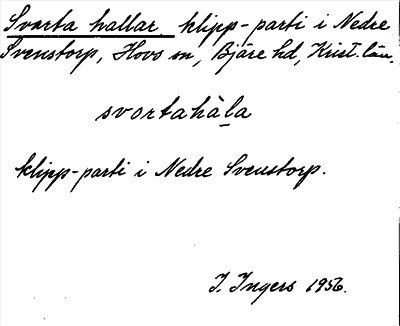 Svarta hallar, klipp-parti i Nedre
Svenstorp, Hovs sn, Bjäre hd, Krist. län.
svortahàla
klipp-parti i Nedre Svenstorp.
I. Ingers 1956.